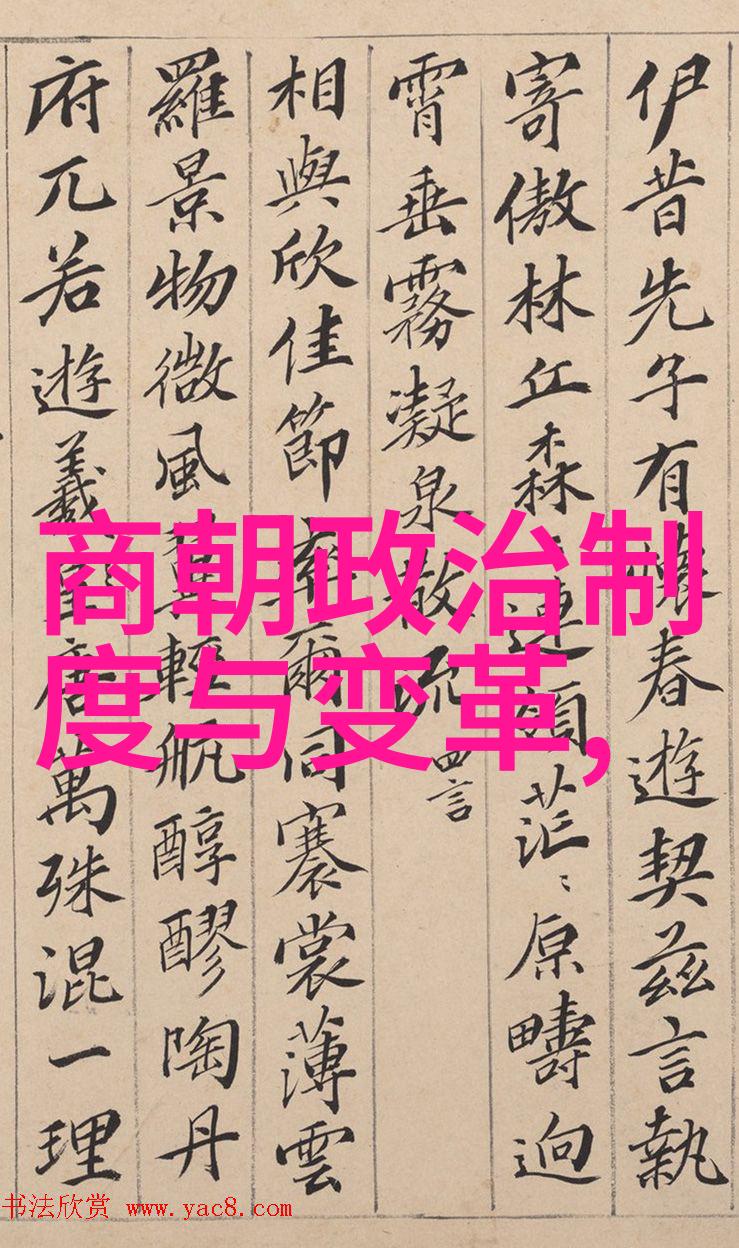 伊昔先子有懷春遊契茲言執
寄傲林丘森〻連嶺茫〻原疇迥
霄垂霧凝泉散流 四言
相與欣佳節率爾同褰裳薄雲
羅景物微風翼輕航醇醪陶丹
府兀若遊羲皇唐萬殊混一理
商朝政治制
度与变革,
书法欣赏 www.yac8.com